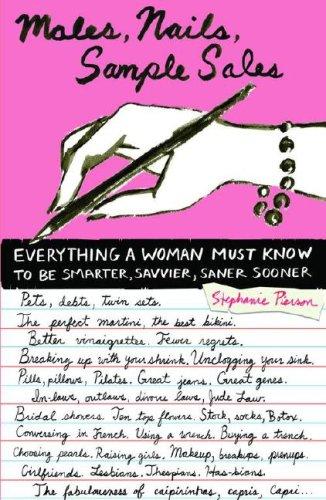 Males, Nails,
Sample Sales
EVERYTHING A WOMAN MUST KNOW
TO BE SMARTER, SAVVIER, SANER SOONER
Stephanie Pierson
Pets, debts, twin sets.
The perfect martini, the best bikini.
Better vinaigrettes. Fewer regrets.
Breaking up with your shrink. Unclogging your sink.
Pills, pillows, Pilates. Great jeans. Great genes.
In-laws, outlaws, divorce laws, Jude Law.
Bridal showers. Ten top flowers. Stock, socks, Botox.
Conversing in French. Using a wrench. Buying a trench.
Choosing pearls. Raising girls. Makeup, breakups, pinups.
Girlfriends. Lesbians. Thespians. Has-bians.
The fabulousness of caipirinhas, capris, Capri...